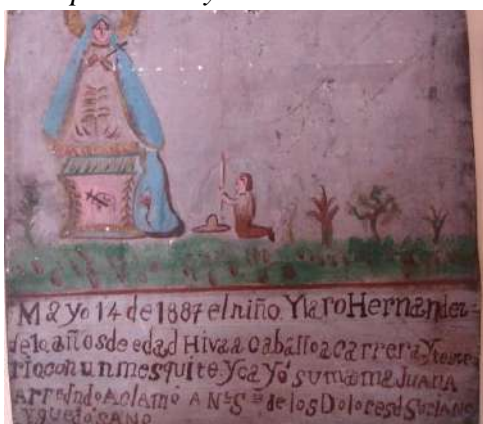 Mayo 14 de 1887 el niño Ylaro Hernandez
de 10 años de edad Hiva a Caballo a Carrera, y
rio con un mesquite y cayó su mama Juana
Arredndo Aclamo A Nª Sª de los Dolores d
y quedó SANO